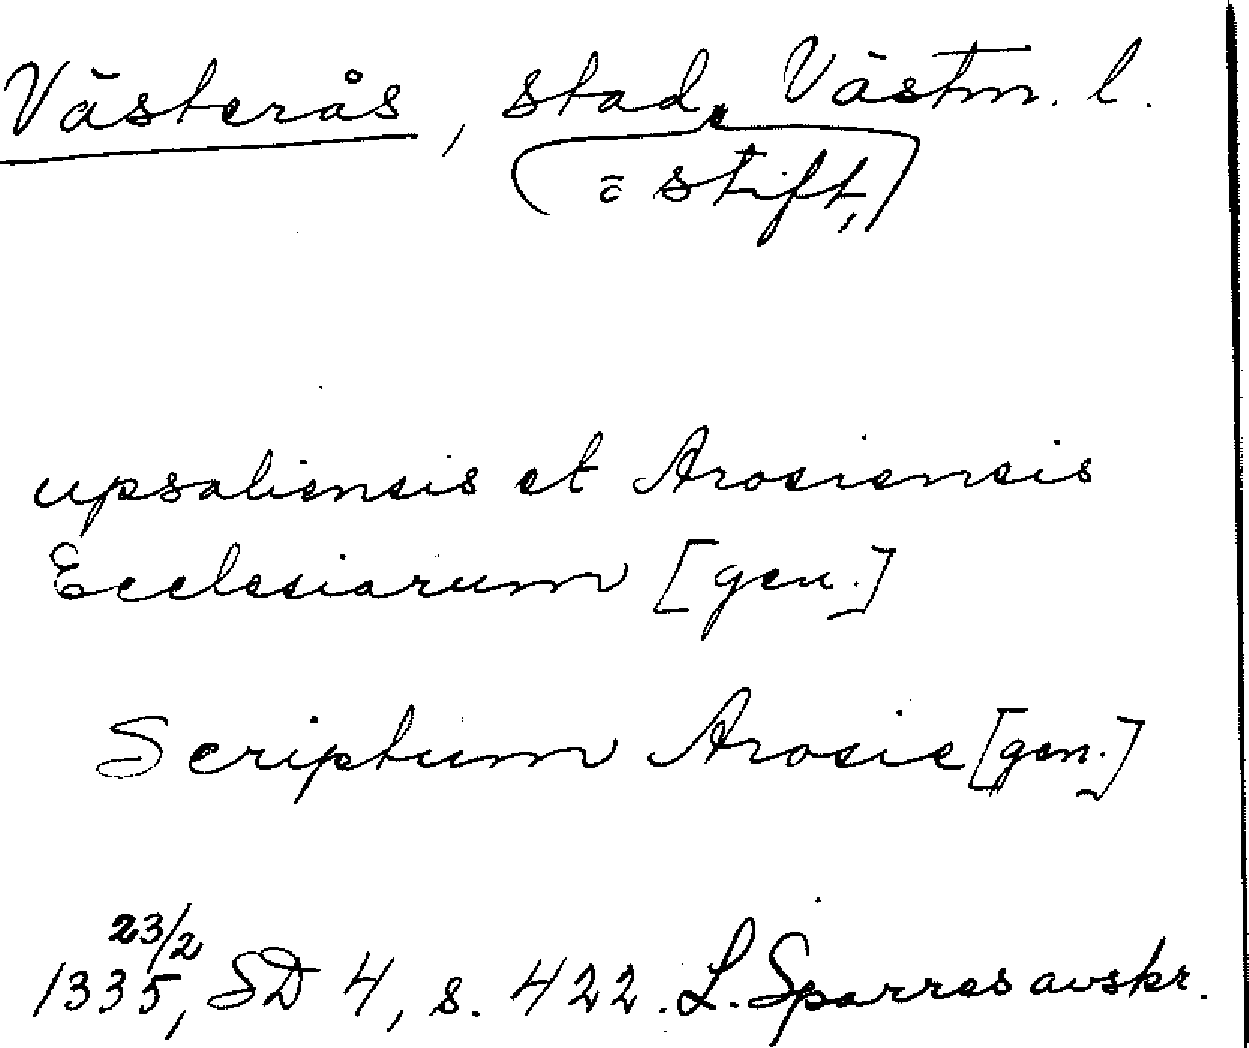 Västerås, stad, Västm. l.
(o stift,)
upsaliensis et Arosiensis
Ecclesiarum [gen.]
Scriptum Arosie [gen.]
23/2
1335, SD 4, s. 422. L. Sparres avskr.